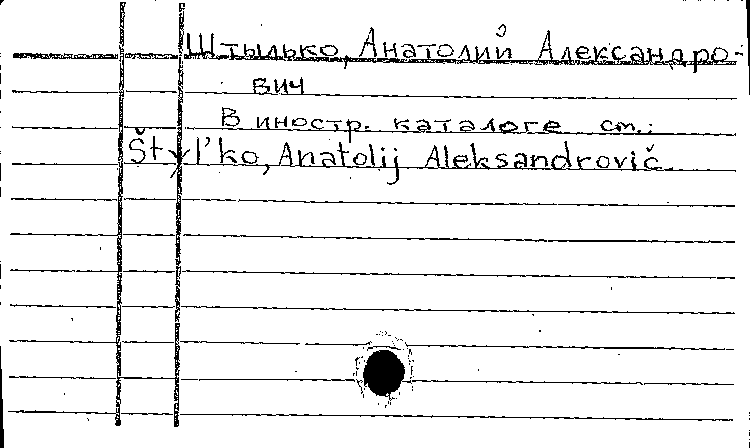 Штылько, Анатолий Александро-
вич
В иностр. каталоге см.:
Štyl'ko, Anatolij Aleksandrovič